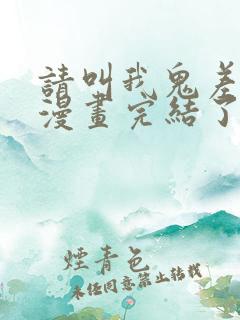 請叫我鬼差
漫畫完結了
煙青色
未经同意禁止转载